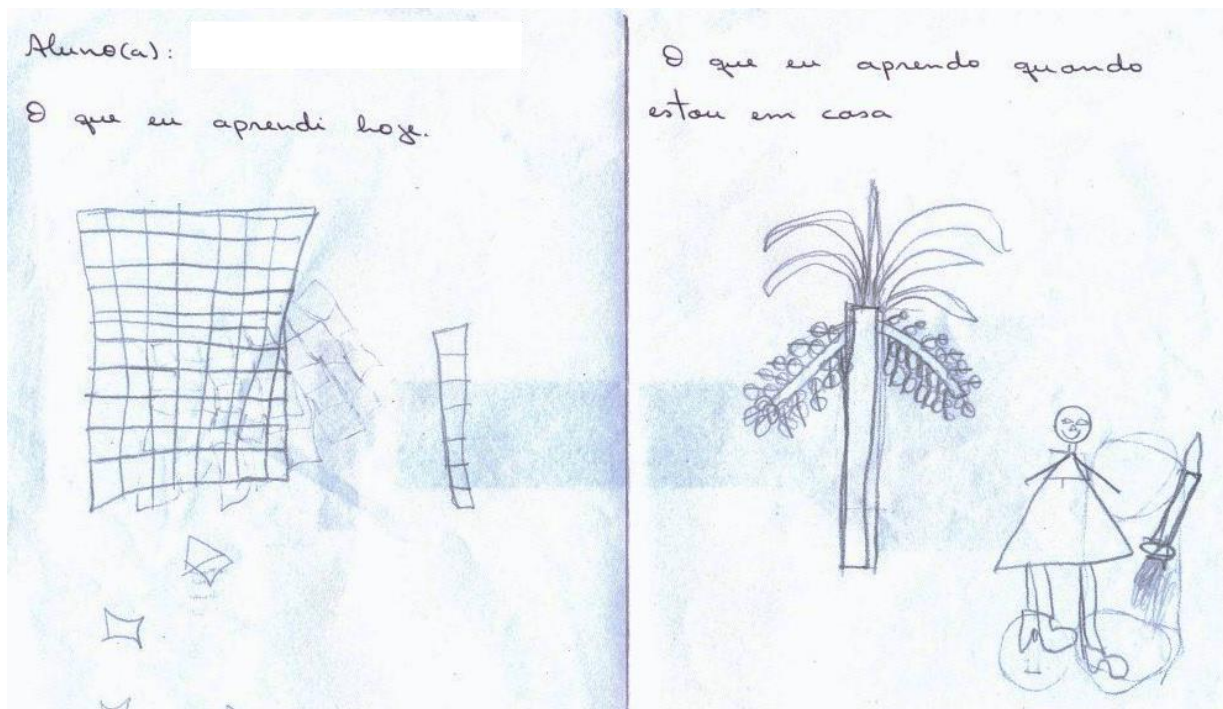 Aluno(a):
O que eu aprendi hoje.
O que eu aprendo quando
estou em casa